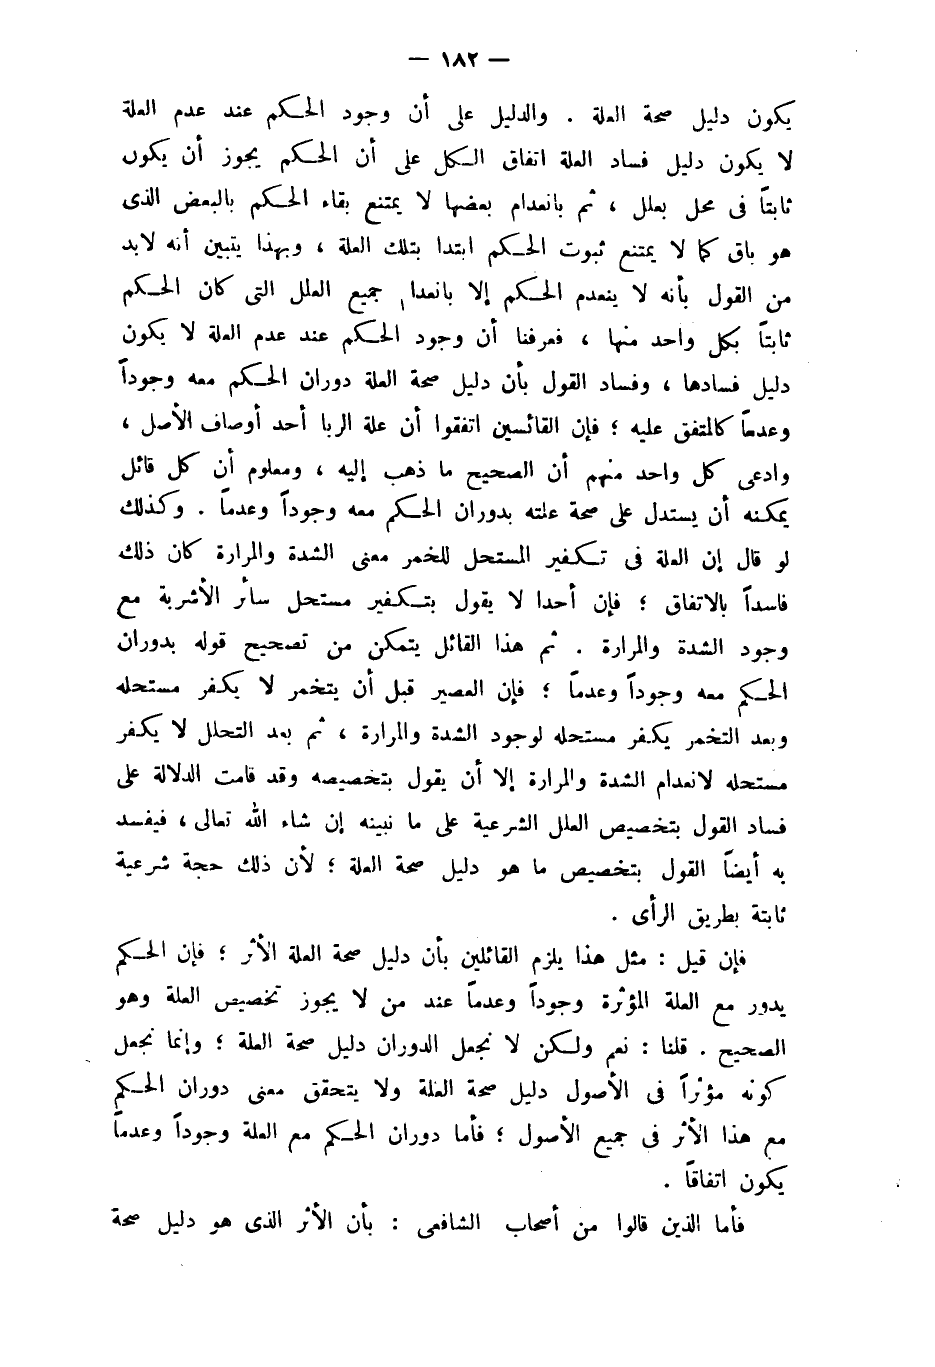 — ١٨٢ —
يكون دليل صحة العلة . والدليل على أن وجود الحـكم عند عدم العلة
لا يكون دليل فساد العلة اتفاق الـكل على أن الحـكم يجوز أن يكون
ثابتاً فى محل بعلل ، ثم بانعدام بعضها لا يمتنع بقاء الحـكم بالبعض الذى
هو باق كما لا يمتنع ثبوت الحـكم ابتدا بتلك العلة ، وبهذا يتبين أنه لابد
من القول بأنه لا ينعدم الحـكم إلا بانعدام جميع العلل التى كان الحـكم
ثابتاً بكل واحد منها ، فعرفنا أن وجود الحـكم عند عدم العلة لا يكون
دليل فسادها ، وفساد القول بأن دليل صحة العلة دوران الحـكم معه وجوداً
وعدماً كالمتفق عليه ؛ فإن القائسين اتفقوا أن علة الربا أحد أوصاف الأصل ،
وادعى كل واحد منهم أن الصحيح ما ذهب إليه ، ومعلوم أن كل قائل
يمكنه أن يستدل على صحة علته بدوران الحـكم معه وجوداً وعدماً . وكذلك
لو قال إن العلة فى تـكفير المستحل للخمر معنى الشدة والمرارة كان ذلك
فاسداً بالاتفاق ؛ فإن أحدا لا يقول بتـكفير مستحل سائر الأشربة مع
وجود الشدة والمرارة . ثم هذا القائل يتمكن من تصحيح قوله بدوران
الحـكم معه وجوداً وعدماً ؛ فإن العصير قبل أن يتخمر لا يكفر مستحله
وبعد التخمر يكفر مستحله لوجود الشدة والمرارة ، ثم بعد التحلل لا يكفر
مستحله لانعدام الشدة والمرارة إلا أن يقول بتخصيصه وقد قامت الدلالة على
فساد القول بتخصيص العلل الشرعية على ما نبينه إن شاء الله تعالى ، فيفسد
به أيضاً القول بتخصيص ما هو دليل صحة العلة ؛ لأن ذلك حجة شرعية
ثابتة بطريق الرأى .
فإن قيل : مثل هذا يلزم القائلين بأن دليل صحة العلة الأثر ؛ فإن الحـكم
يدور مع العلة المؤثرة وجوداً وعدماً عند من لا يجوز تخصيص العلة وهو
الصحيح . قلنا : نعم ولـكن لا نجعل الدوران دليل صحة العلة ؛ وإنما نجعل
كونه مؤثراً فى الأصول دليل صحة العلة ولا يتحقق معنى دوران الحـكم
مع هذا الأثر فى جميع الأصول ؛ فأما دوران الحـكم مع العلة وجوداً وعدماً
يكون اتفاقاً .
فأما الذين قالوا من أصحاب الشافعى : بأن الأثر الذى هو دليل صحة